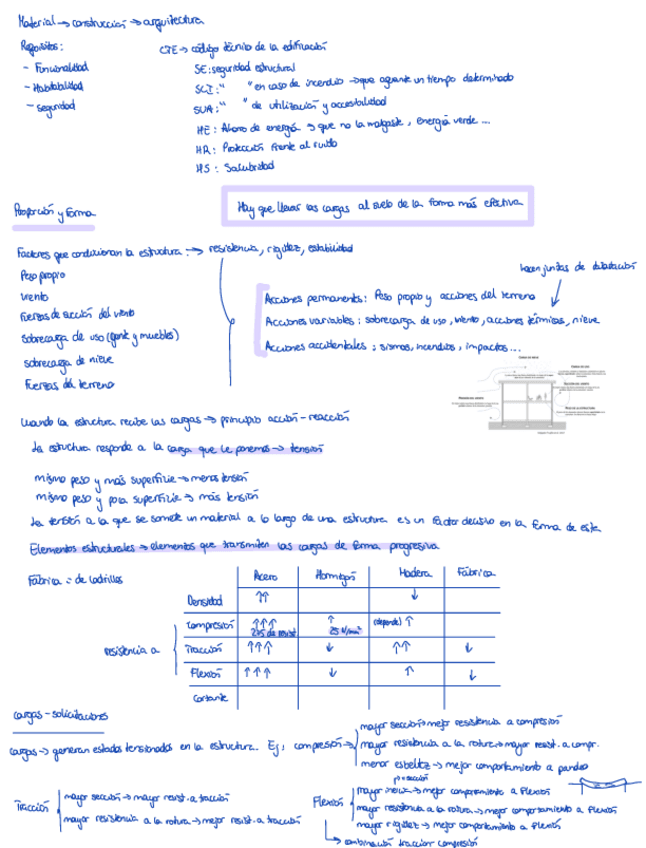 Material → construcción → arquitectura
Requisitos:
- Funcionalidad
- Habitabilidad
- seguridad
CTE → código técnico de la edificación
SE: seguridad estructural
SCI: " " en caso de incendio → que aguante un tiempo determinado
SUA: " " de utilización y accesibilidad
HE: Ahorro de energía → que no la malgaste, energía verde ...
HR: Protección frente al ruido
HS: Salubridad
Proporción y forma
Hay que llevar las cargas al suelo de la forma más efectiva
Factores que condicionan la estructura: → resistencia, rigidez, estabilidad
Peso propio
viento
Fuerzas de succión del viento
sobrecarga de uso (gente y muebles)
sobrecarga de nieve
Fuerzas del terreno
hacen juntas de dilatación
Acciones permanentes: Peso propio y acciones del terreno
Acciones variables: sobrecarga de uso, viento, acciones térmicas, nieve
Acciones accidentales: sismos, incendios, impactos...
Cuando la estructura recibe las cargas → principio acción-reacción
La estructura responde a la carga que le ponemos → tensión
mismo peso y más superficie → menos tensión
mismo peso y poca superficie → más tensión
La tensión a la que se somete un material a lo largo de una estructura es un factor decisivo en la forma de esta
Elementos estructurales → elementos que transmiten las cargas de forma progresiva
Fábrica = de ladrillos
Acero Hormigón Madera Fábrica
Densidad ↑↑ ↓
resistencia a
compresión ↑↑↑ ↑ (depende) ↑
275 de resist. 25 N/mm²
Tracción ↑↑↑ ↓ ↑↑ ↓
Flexión ↑↑↑ ↓ ↑ ↓
Cortante
cargas - solicitaciones
cargas → generan estados tensionados en la estructura. Ej: compresión →
mayor sección → mejor resistencia a compresión
mayor resistencia a la rotura → mayor resist. a compr.
menor esbeltez → mejor comportamiento a pandeo
Tracción
mayor sección → mayor resist. a tracción
mayor resistencia a la rotura → mejor resist. a tracción
Flexión
mayor inercia → mejor comportamiento a flexión
mayor resistencia a la rotura → mejor comportamiento a flexión
mayor rigidez → mejor comportamiento a flexión
↳ combinación tracción compresión